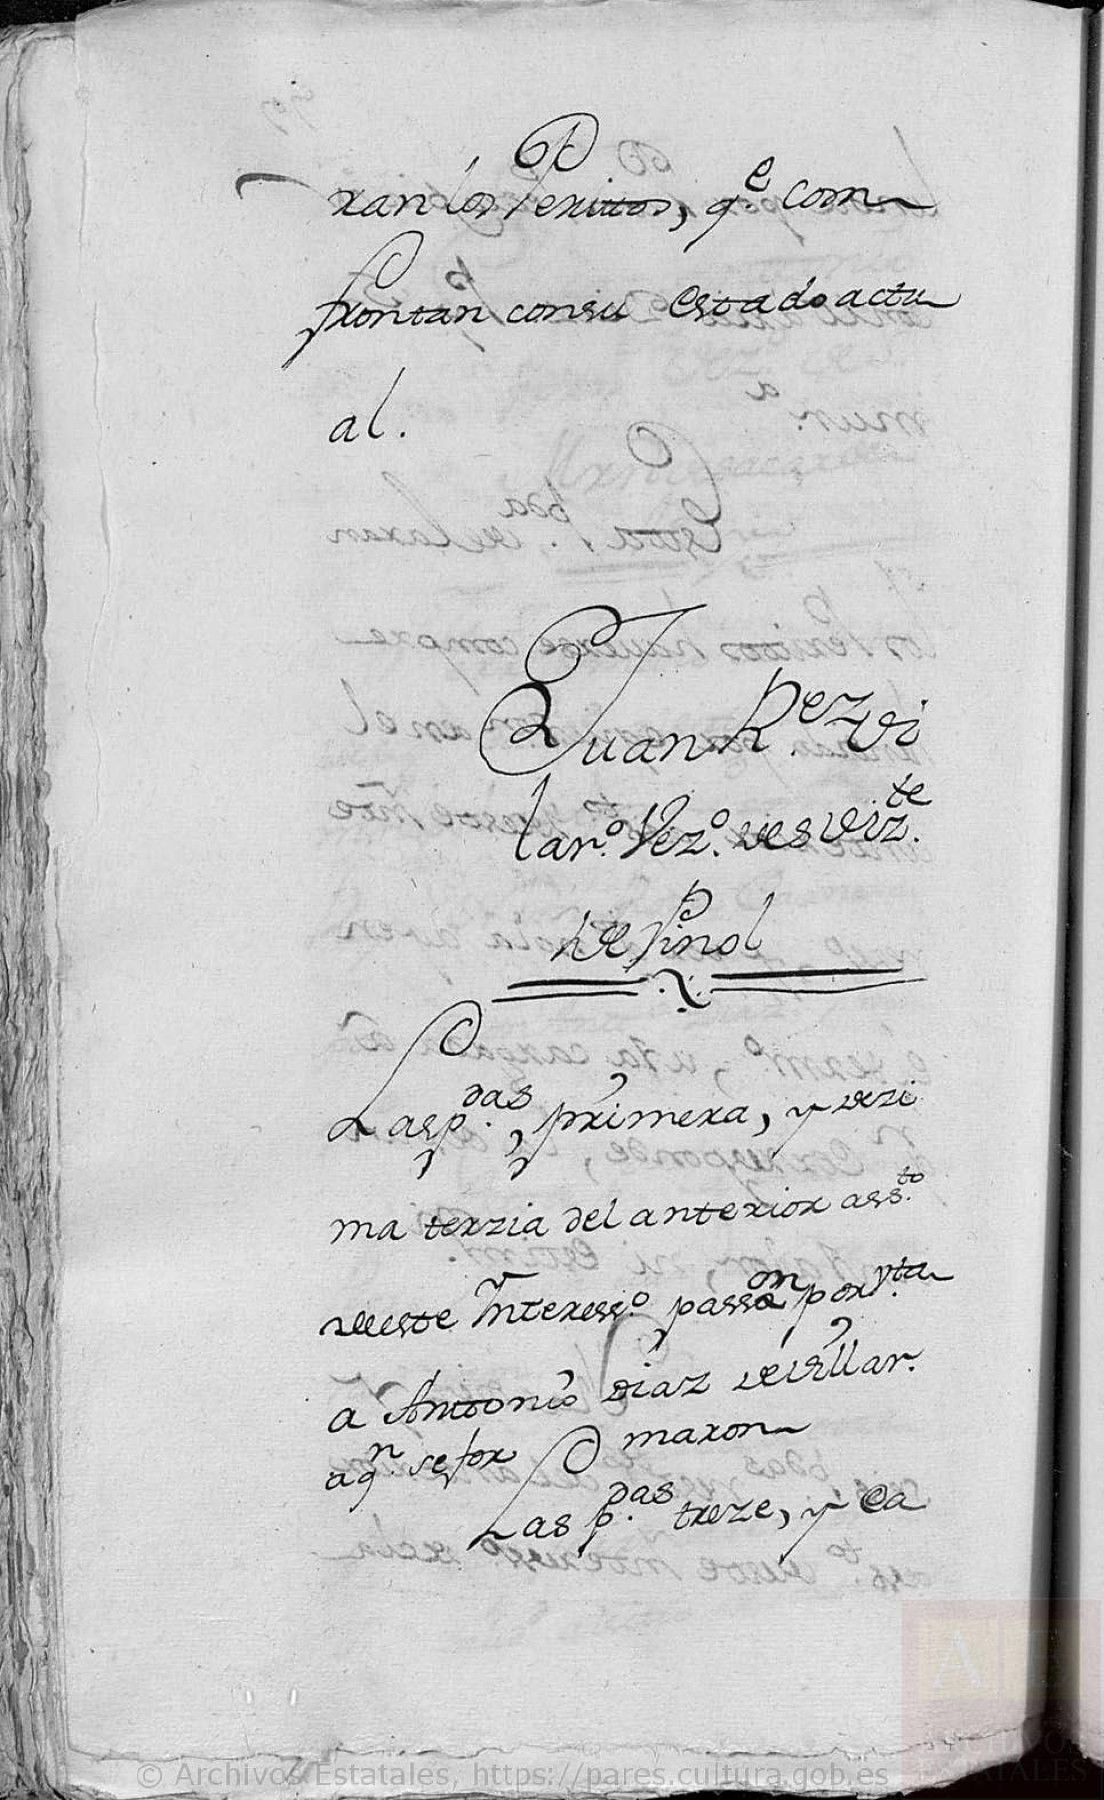 ran los Peritos, q.e com
frontan con su estado actu
al.
Juan R.ez Vi
lar.o Vez.o de S Viz.te
de Pinol
Las p.das, primera, y dezi
ma terzia del anterior ass.to
de este Ynteress.o passon por v.ta
a Antonio Diaz de Villar.
a q.n se for maron
Las p.das treze, y ca
© Archivos Estatales, https://pares.cultura.gob.es